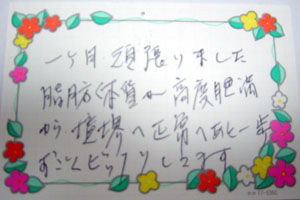 一ヶ月頑張りました
脂肪体質が高度肥満
から境界へ正常へあと一歩
すごくビックリしてます